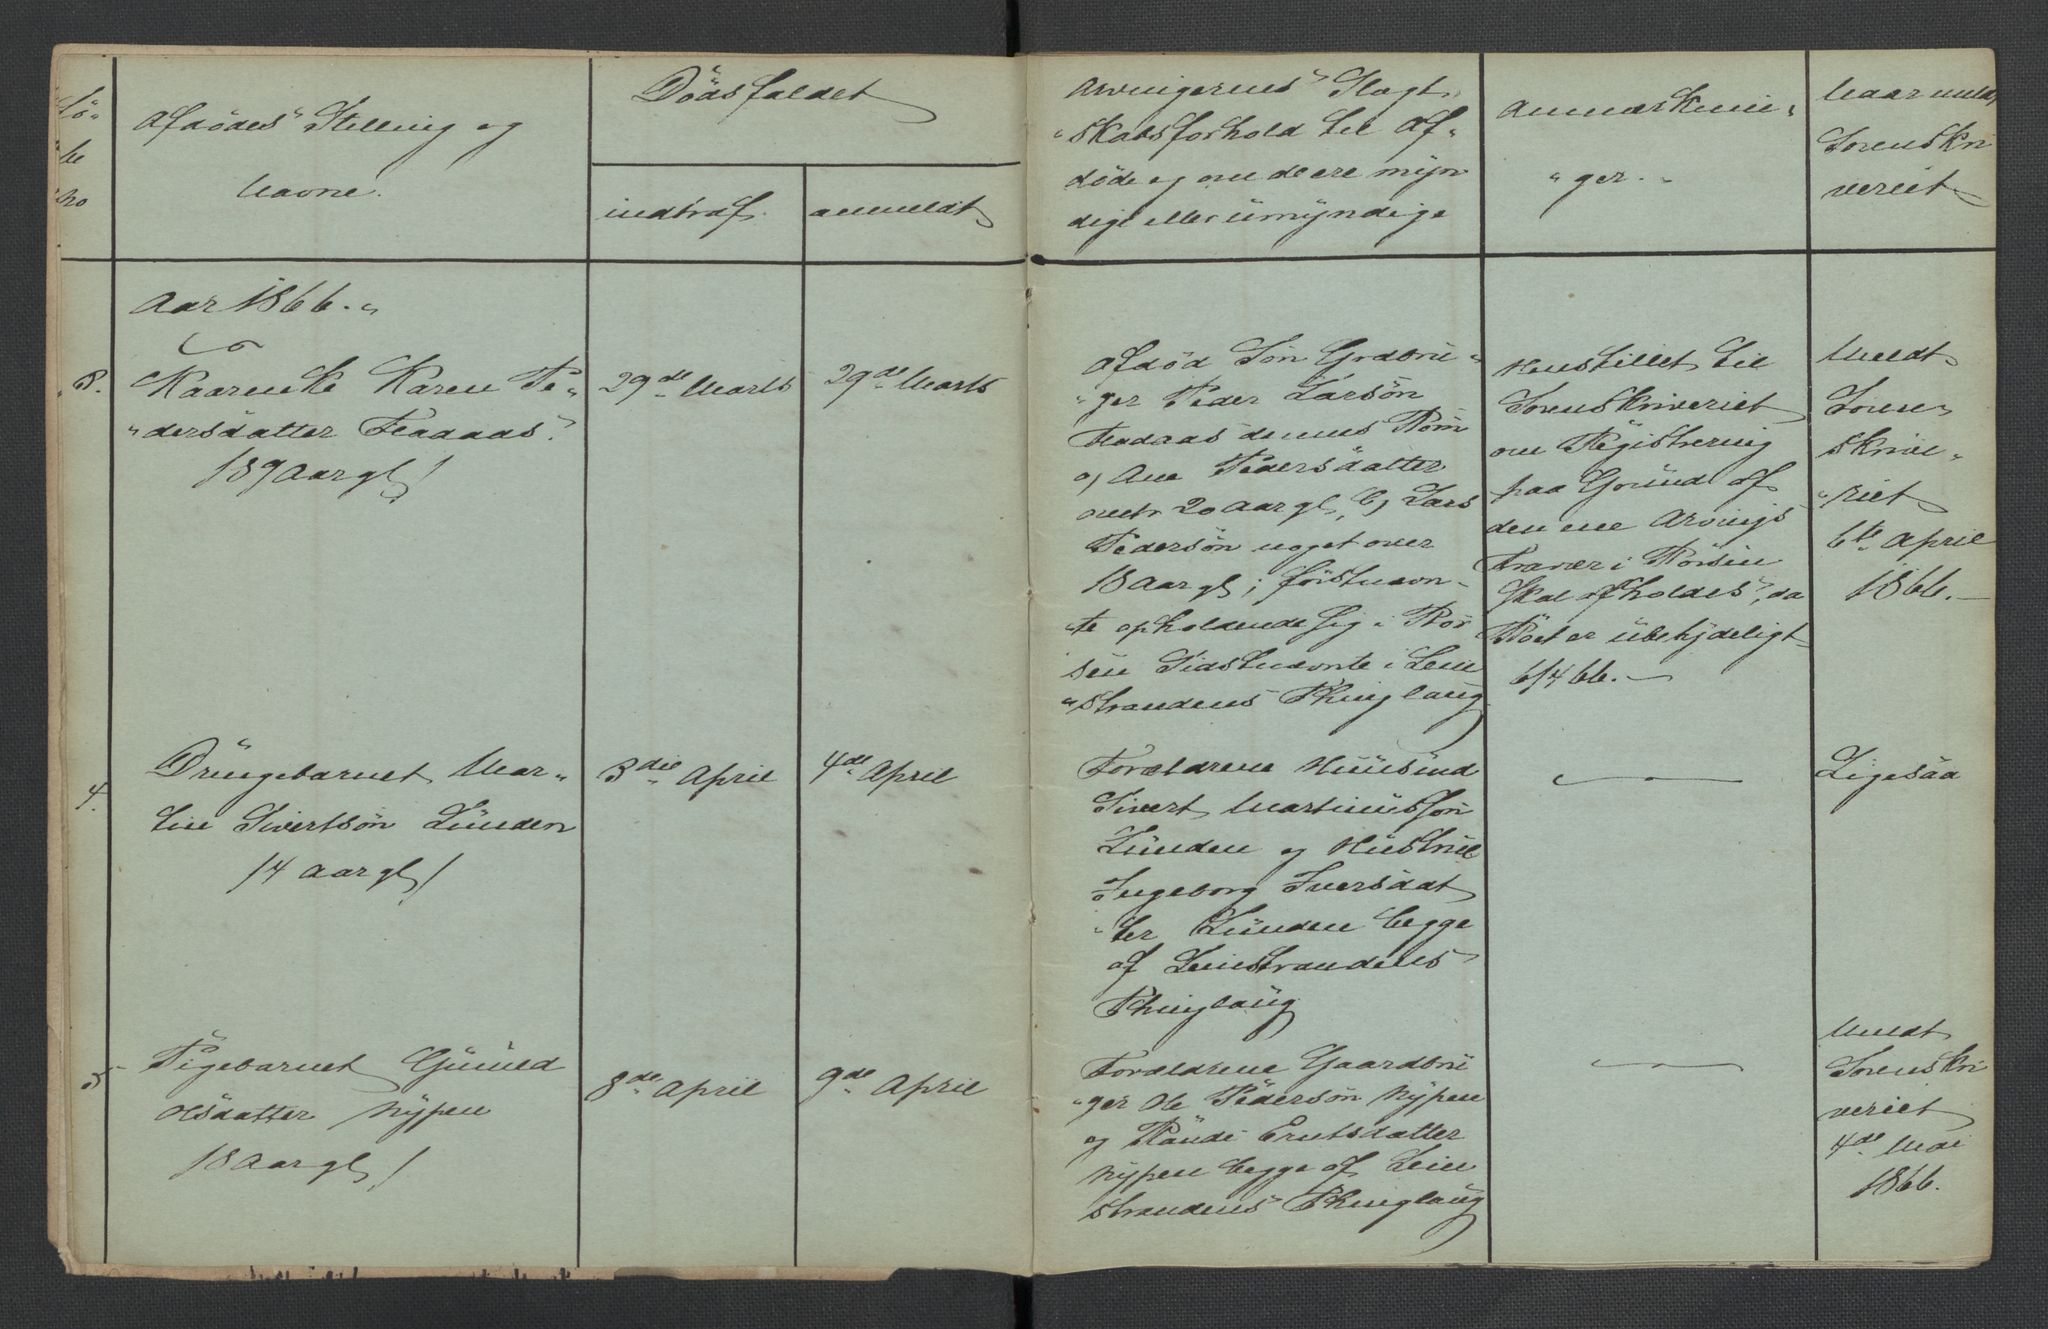 Lö-
be
no
Afdödes Stilling og
Navne.
Dödsfaldet
indtraf.
anmeldt
Arvingernes Slægt-
"skabsforhold til Af-
döde og om de ere myn
dige eller umyndige
Anmærknin-
"ger.
Naar meldt
Sorenskri
veriet
Aar 1866.
3.
Kaarenke Karen Pe-
"dersdatter Fladaas.
89 Aar gl /
29de Marts
29de Marts
Afdöd Sön Grdbru-
"ger Peder Larsön
Fladaas dennes Börn
a, Ane Pedersdatter
over 20 Aar gl, b, Lars
Pedersön noget over
18 Aar gl; förstnævn-
"te opholdende sig i
sidstnævnte i Lein
"strandens Thinglaug
Henstillet til
Sorenskriveriet
om Registrering
paa Grund af
den ene Arvings
Fravær i
skal afholdes, da
Boet er ubetydeligt
6/4 66.
Meldt
Soren-
skrive-
"riet
6te April
1866.
4.
Drengebarnet Mar-
tin Sivertsön Lunden
14 Aar gl /
3die April
4de April
Forældrene Huusmd
Sivert Martinussön
Lunden og Hustrue
Ingeborg Iversdat
"ter Lunden begge
af Leinstrandens
Thinglaug
Ligesaa
5
Pigebarnet Gunild
Olsdatter Nypen
18 Aar gl /
8de April
9de April
Forældrene Gaardbru
"ger Ole Pedersön Nypen
og Randi Erntsdatter
Nypen begge af Lein
strandens Thinglaug
Meldt
Sorenskri
veriet
4de Mai
1866.